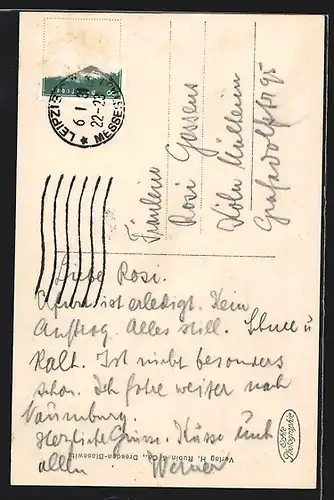 LEIPZIG
6 1 31
22-23
MESSESTADT
Fräulein
Rosi Gossens
Köln Mülheim
Grafadolfstr 95
Liebe Rosi.
ist erledigt. Kein
Auftrag. Alles still. Schnee u
Kalt. Ist nicht besonders
schön. Ich fahre weiter nach
Naumburg.
Herzliche Grüsse. Küsse Euch
allen Werner
Verlag H. Rubin & Co., Dresden-Blasewitz
Echte
Photographie